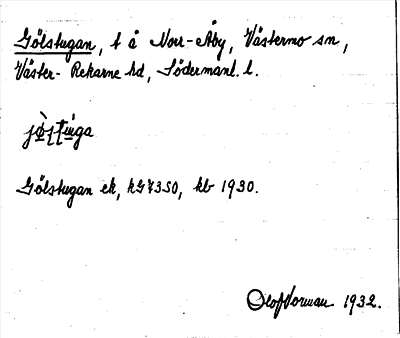 Gölstugan, t å Norr-Åby, Västermo sn,
Väster-Rekarne hd, Södermanl. l.
Gölstugan ek, kG7350, kb 1930.
Olof Vorman 1932.